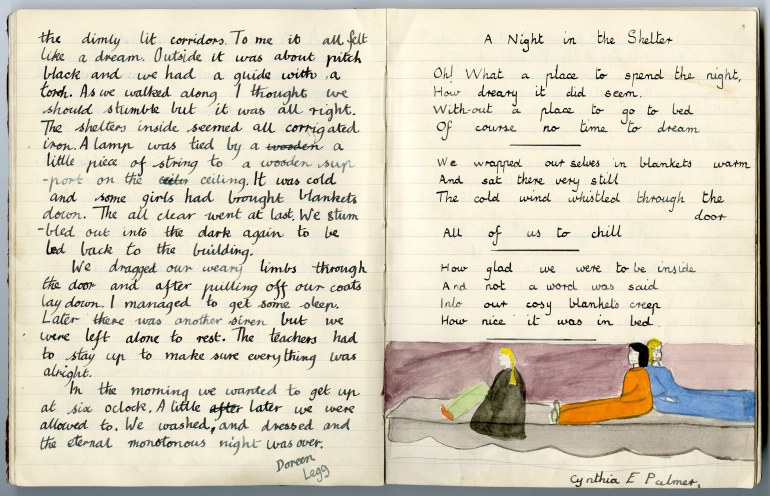 the dimly lit corridors. To me it all felt
like a dream. Outside it was about pitch
black and we had a guide with a
torch. As we walked along I thought we
should stumble but it was all right.
The shelters inside seemed all corrigated
iron. A lamp was tied by a wooden a
little piece of string to a wooden sup
-port on the ceiling. It was cold
and some girls had brought blankets
down. The all clear went at last. We stum
-bled out into the dark again to be
led back to the building.
We dragged our weary limbs through
the door and after pulling off our coats
lay down. I managed to get some sleep.
Later there was another siren but we
were left alone to rest. The teachers had
to stay up to make sure everything was
alright.
In the morning we wanted to get up
at six oclock. A little after later we were
allowed to. We washed, and dressed and
the eternal monotonous night was over.
Doreen
Legg
A Night in the Shelter
Oh! What a place to spend the night,
How dreary it did seem.
With-out a place to go to bed
Of course no time to dream
We wrapped our selves in blankets warm
And sat there very still
The cold wind whistled through the
door
All of us to chill
How glad we were to be inside
And not a word was said
Into our cosy blankets creep
How nice it was in bed.
Cynthia E Palmer.